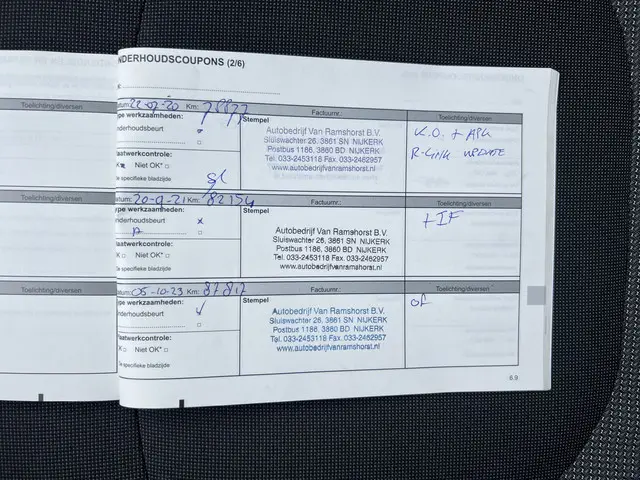 NDERHOUDSCOUPONS (2/6)
Toelichting/diversen
atum: 22-07-20 Km: 78877
Factuurnr.:
Toelichting/diversen
ype werkzaamheden:
Stempel
nderhoudsbeurt
Autobedrijf Van Ramshorst B.V.
Sluiswachter 26, 3861 SN NIJKERK
Postbus 1186, 3860 BD NIJKERK
Tel. 033-2453118 Fax. 033-2462957
www.autobedrijfvanramshorst.nl
K.O. + APK
R-LINK UPDATE
laatwerkcontrole:
K Niet OK*
Zie specifieke bladzijde
Toelichting/diversen
atum: 20-9-21 Km: 82154
Factuurnr.:
Toelichting/diversen
ype werkzaamheden:
Stempel
nderhoudsbeurt x
Autobedrijf Van Ramshorst B.V.
Sluiswachter 26, 3861 SN NIJKERK
Postbus 1186, 3860 BD NIJKERK
Tel. 033-2453118 Fax. 033-2462957
www.autobedrijfvanramshorst.nl
+IF
laatwerkcontrole:
K Niet OK*
Zie specifieke bladzijde
Toelichting/diversen
atum: 05-10-23 Km: 87812
Factuurnr.:
Toelichting/diversen
ype werkzaamheden:
Stempel
nderhoudsbeurt
Autobedrijf Van Ramshorst B.V.
Sluiswachter 26, 3861 SN NIJKERK
Postbus 1186, 3860 BD NIJKERK
Tel. 033-2453118 Fax. 033-2462957
www.autobedrijfvanramshorst.nl
OF
laatwerkcontrole:
K Niet OK*
Zie specifieke bladzijde
6.9